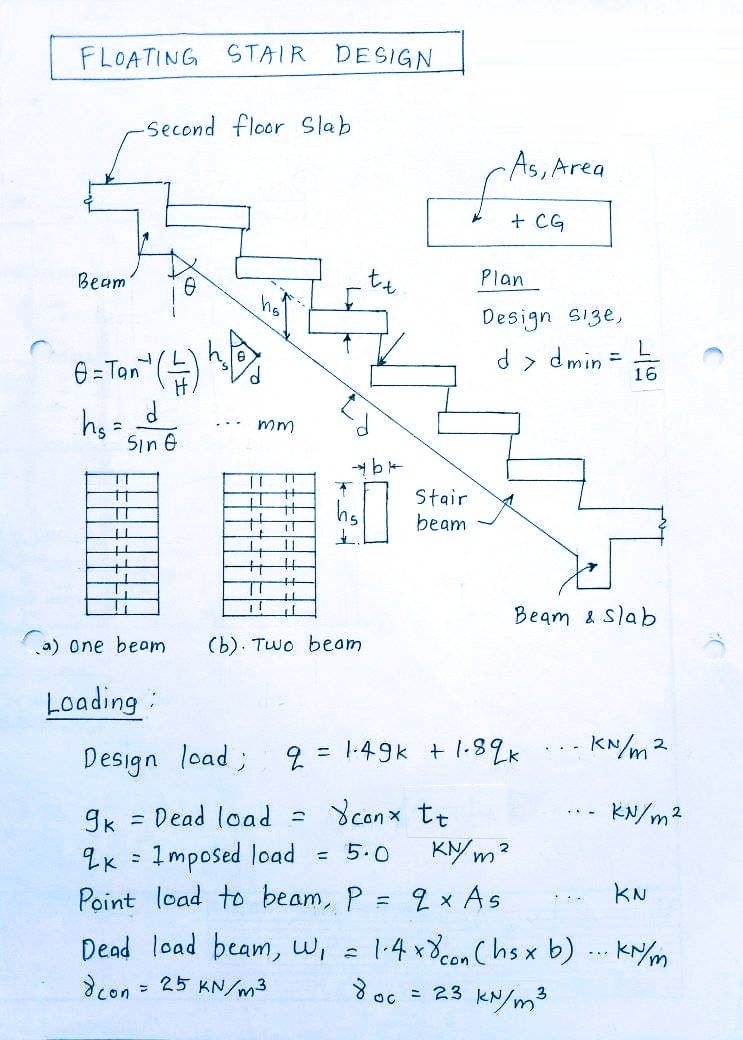 FLOATING STAIR DESIGN
Second floor Slab
As, Area
+ CG
Beam
θ
hs
tt
Plan
Design size,
d > dmin = L/16
θ = Tan⁻¹ (L/H)
hs
θ
d
hs = d/Sin θ ... mm
d
b
hs
Stair
beam
Beam & slab
(a) One beam
(b). Two beam
Loading :
Design load ; q = 1.4gk + 1.8qk ... KN/m²
gk = Dead load = γcon x tt ... KN/m²
qk = Imposed load = 5.0 KN/m²
Point load to beam, P = q x As ... KN
Dead load beam, W₁ = 1.4 x γcon (hs x b) ... KN/m
γcon = 25 KN/m³ γoc = 23 KN/m³